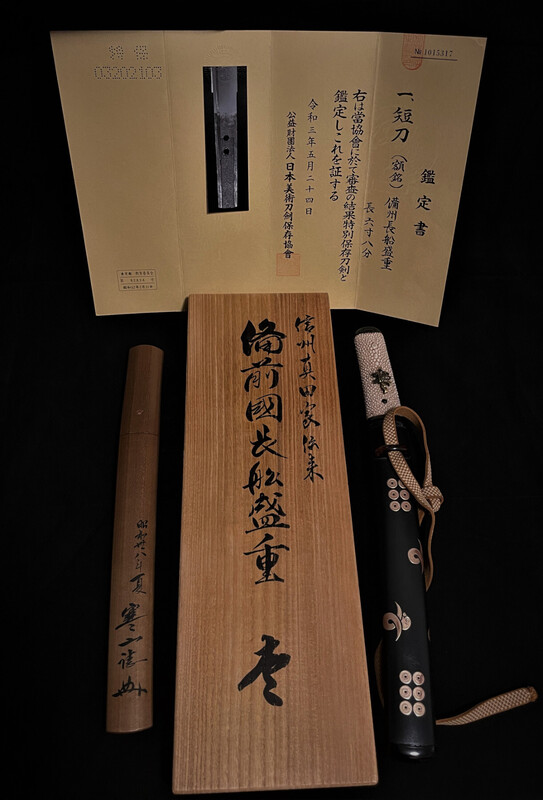 鑑定書
一、短刀(額銘)備州長船盛重
長六寸八分
右は當協會に於て審査の結果特別保存刀劍と
鑑定しこれを証する
令和三年五月二十四日
公益財團法人 日本美術刀劍保存協會
№ 1015317
03202103
信州真田家伝来
備前國長船盛重
昭和廿八年夏
寒山誌